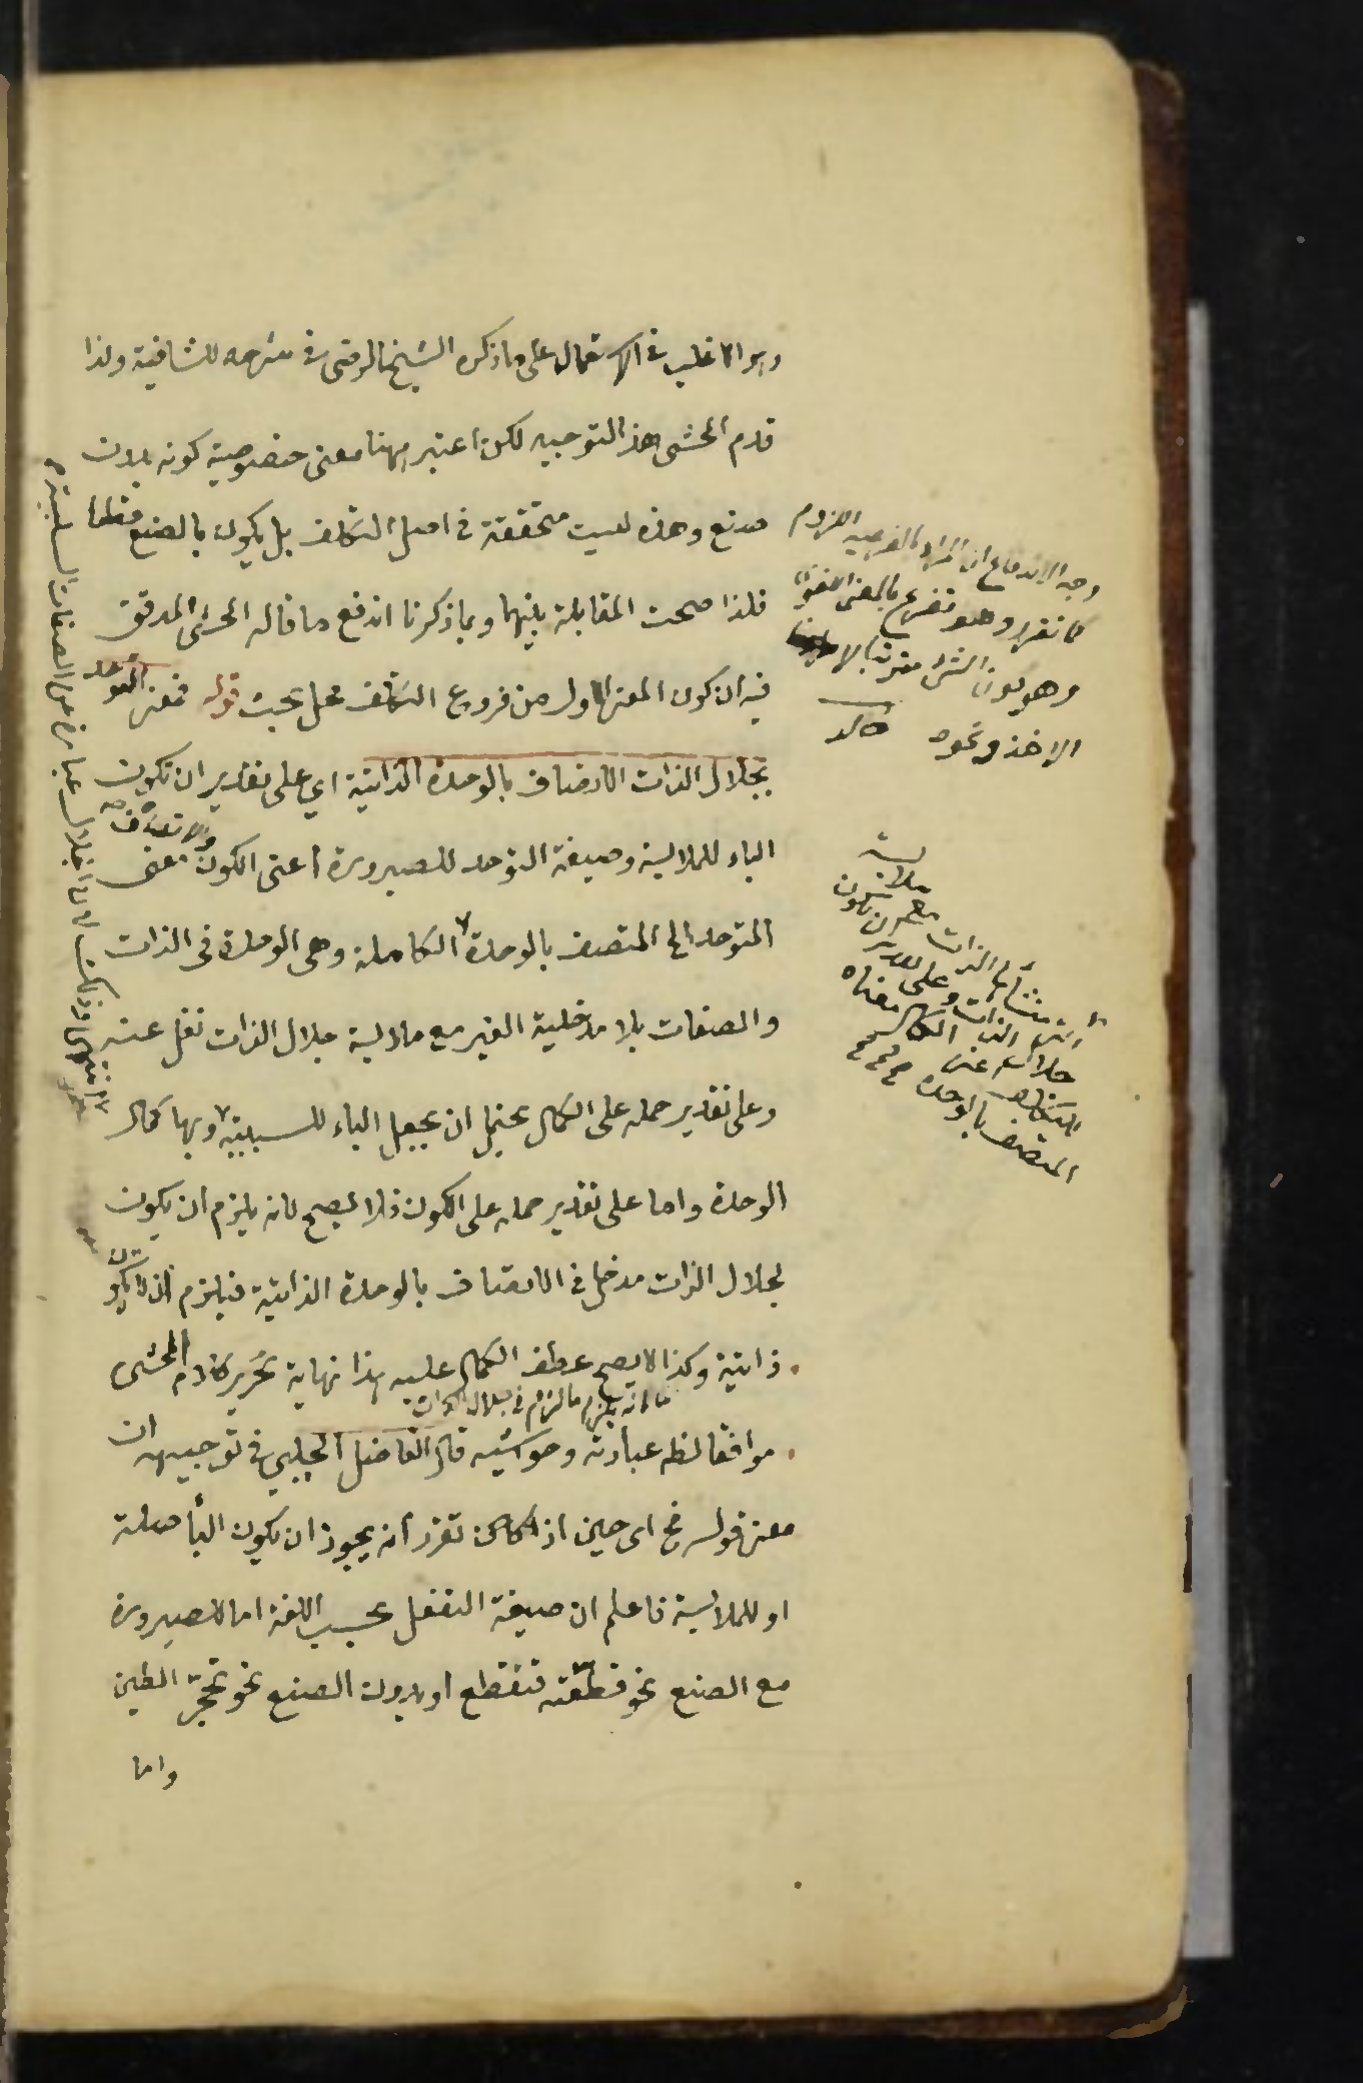 وهو الاغلب في الاستعمال على ما ذكره الشيخ الرضي في شرحه للشافية ولذا
قدم المحشي هذا التوجيه لكن اعتبر ههنا معنى خصوصية كونه بلا
صنع وهذه ليست متحققة في اصل التكلف بل يكون بالصنع قطعا
فلذا صحت المقابلة بينهما وبما ذكرنا اندفع ما قاله المحشي المدقق
فيه ان كون المعنى الاول من فروع التكلف محل بحث قوله فمعنى التوحد
بجلال الذات الاتصاف بالوحدة الذاتية اي على تقدير ان تكون
الباء للملابسة وصيغة التوحد للصيرورة اعني الكون والاتصاف معنى
المتوحد الخ المتصف بالوحدة الكاملة وهي الوحدة في الذات
والصفات بلا مدخلية الغير مع ملابسة جلال الذات نقل عنه
وعلى تقدير حمله على الكمال يحتمل ان يجعل الباء للسببية وبها كمال
الوحدة واما على تقدير حمله على الكون فلا يصح لانه يلزم ان يكون
لجلال الذات مدخل في الاتصاف بالوحدة الذاتية فيلزم ان لا يكون
ذاتية وكذا لا يصح عطف الكمال عليه هذا نهاية تحرير كلام المحشي
لانه يلزم ما لزم في جلال الذات
موافقا لظ عبارته وحواشيه قال الفاضل الجلبي في توجيهه ان
معنى قوله فح اي حين اذ كان تقرر انه يجوز ان يكون البأ صلة
او للملابسة فاعلم ان صيغة التفعل بحسب اللغة اما للصيرورة
مع الصنع نحو قطعته فتقطع او بدون الصنع نحو تحجر الطين
واما
وجه الاندفاع ان المراد بالفرعية اللزوم
كما تقرر وهو تفرع بالمعنى اللغوي
وهو كون الشئ
الاخذ ونحوه خالد
ملابسة
الذات
وعلى تقدير ان يكون
الكمال معناه
المتصف بالوحدة
عبارة عن الصفات السلبية